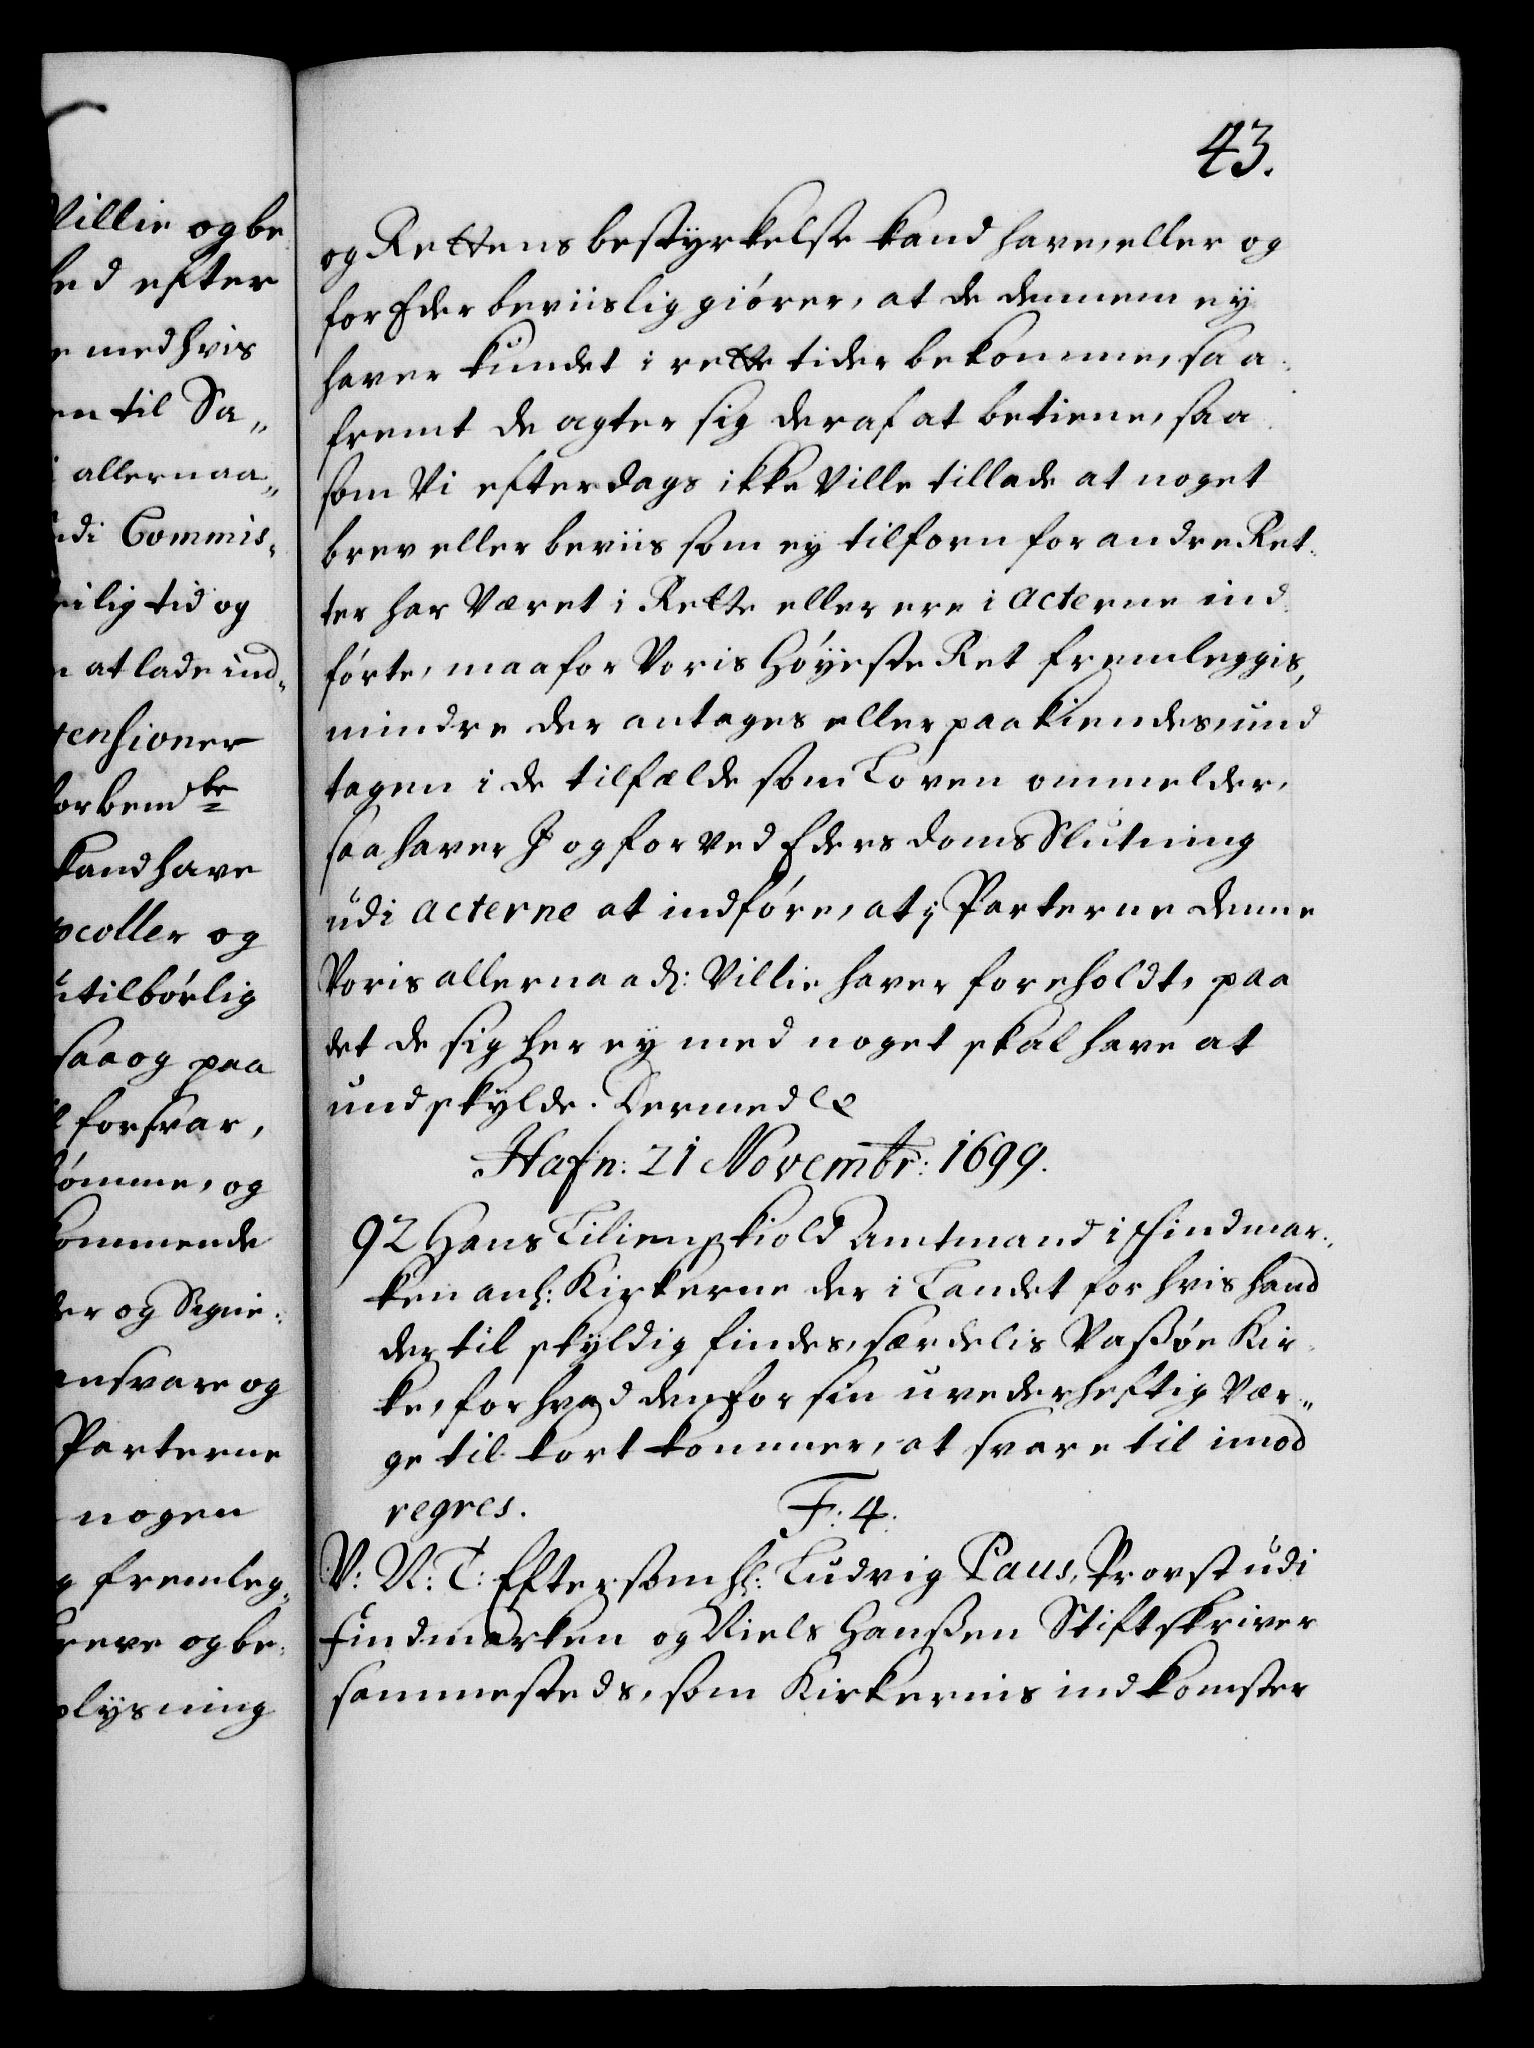 43.
Villie og be
hed efter
e med hvis
en til Sa„
allernaa„
udi Commis„
eilig tid og
n at lade ind„
tensioner
forbemte
kand have
ocoller og
utilbørlig
saa og paa
l forsvar,
dømme, og
kommende
der og Signe„
ansvare og
Parterne
nogen
g fremleg„
breve og be„
plysning
og Rettens bestyrkelse kand have, eller og
for Eder beviislig giører, at de dennem ey
haver kundet i rette tider bekomme, saa
fremt de agter sig deraf at betiene, saa
som Vi efterdags ikke Ville tillade at noget
brev eller beviis som ey tilforn for andre Ret„
ter har Været i Rette eller ere i acterne ind„
førte, maa for Voris Høyeste Ret fremleggis,
mindre der antages eller paakiendes, und
tagen i de tilfælde som Loven ommelder,
saa haver I og forved Eders doms Slutning
udi acterne at indføre, at j Parterne denne
Voris allernaad: Villie haver foreholdt, paa
det de sig her ey med noget skal have at
undskylde. Dermed &c
Hafn: 21 Novembr: 1699.
92 Hans Lilienskiold Amtmand i Findmar„
ken anl: Kirkerne der i Landet for hvis hand
dertil skyldig findes, særdelis Vaßøe Kir„
ke, for hvad den for sin uvederheftig Vær„
ge til kort kommer, at svare til imod
regres. F: 4.
V: N: T: Eftersom hl: Ludvig Paus, Provst udi
Findmarken og Niels Hanßen Stiftskriver
sammesteds, som Kirkernis indkomster